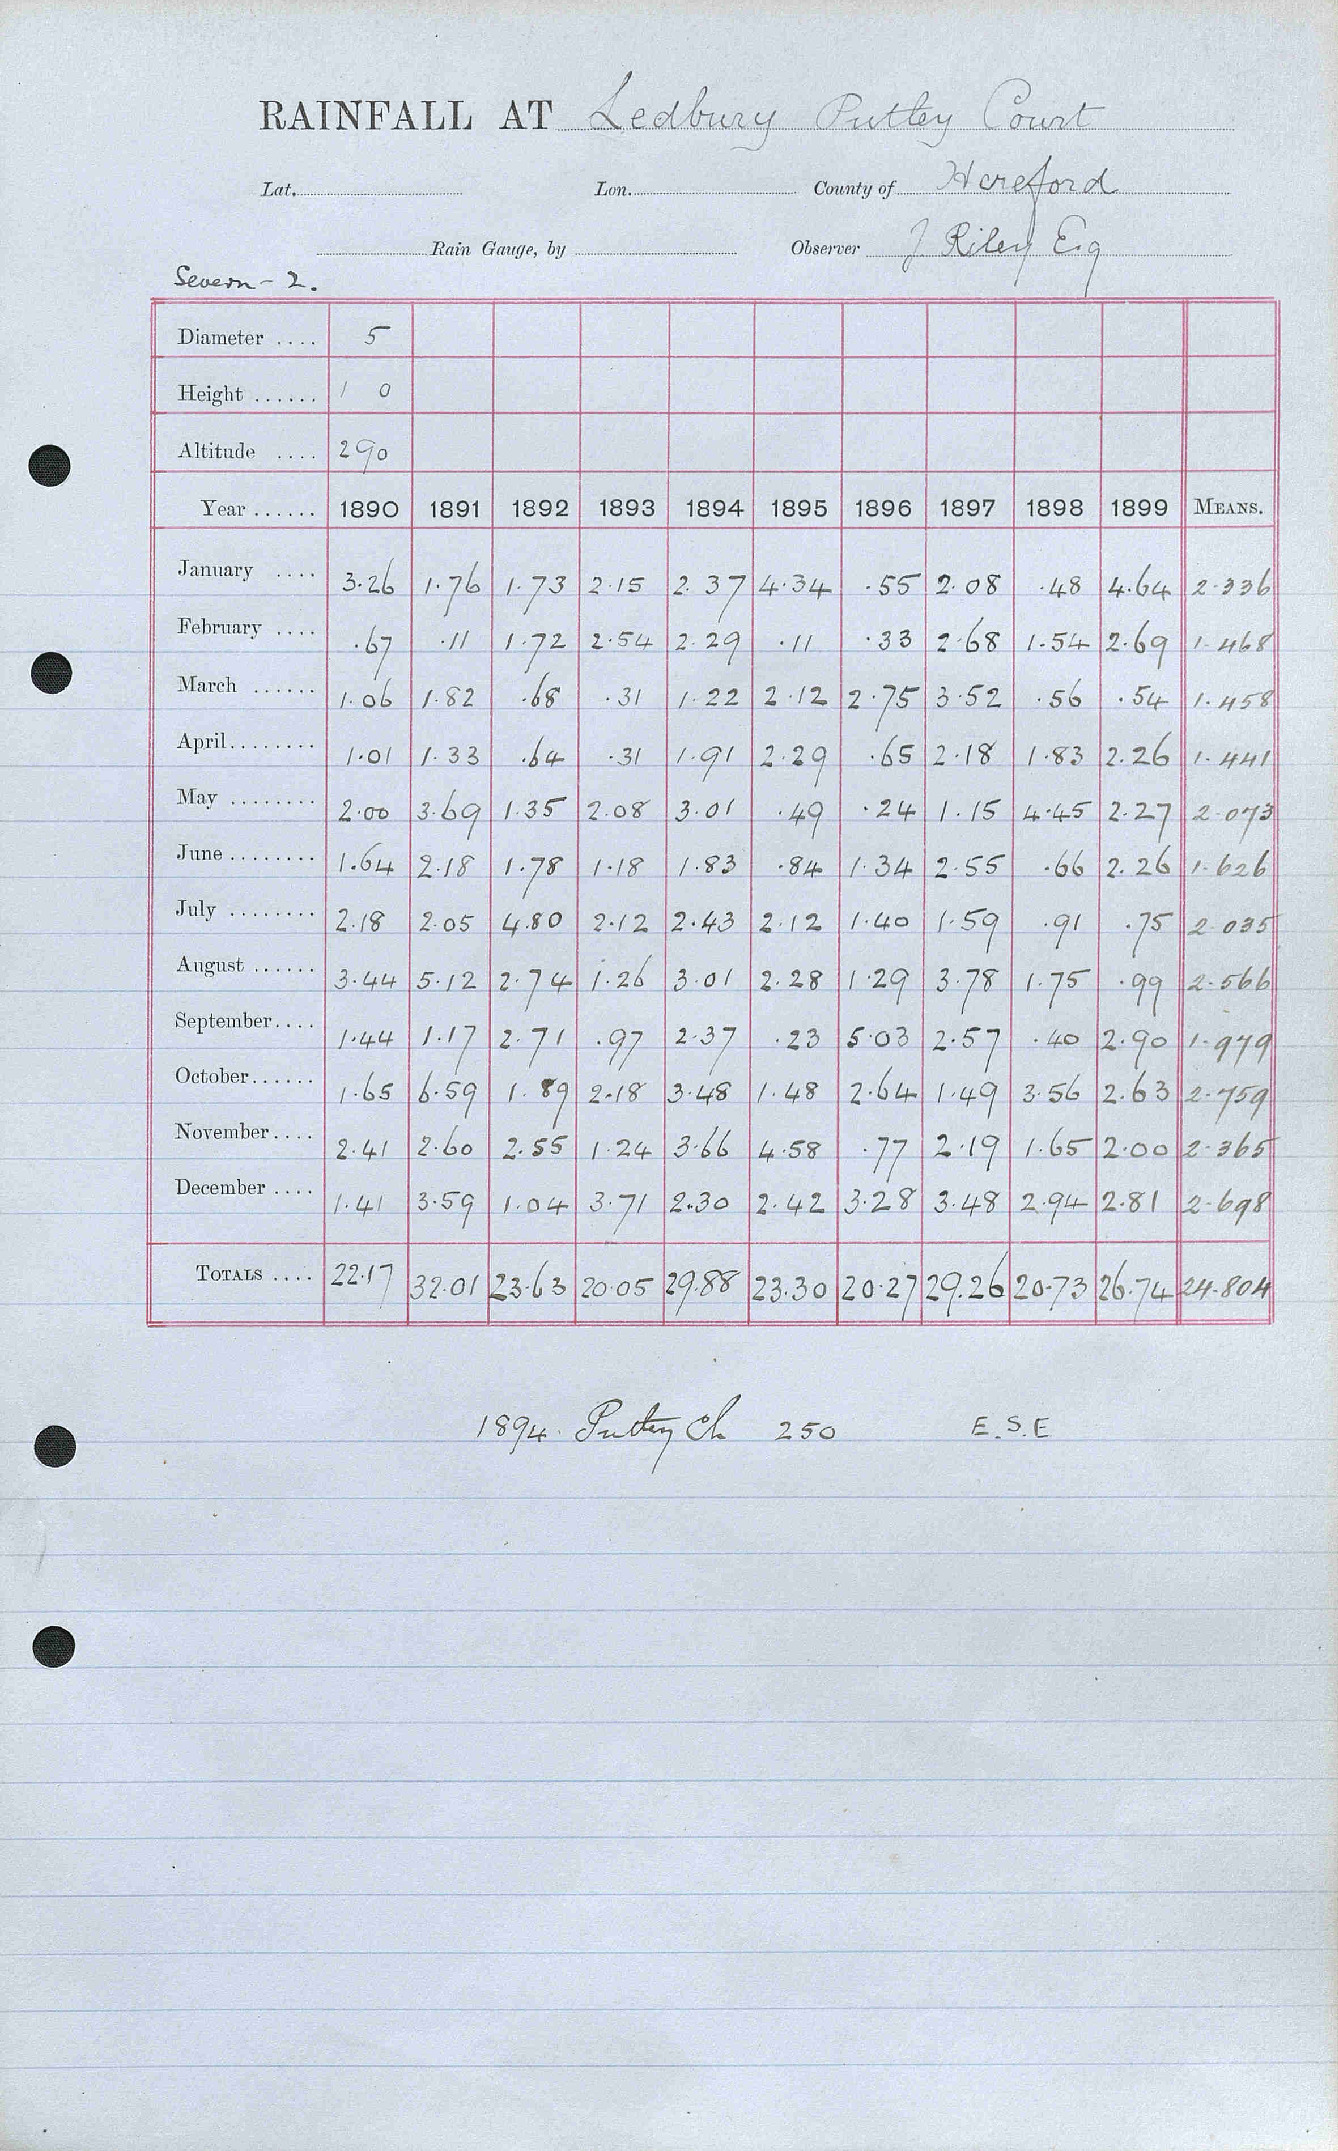 RAINFALL AT Ledbury Putley Court
Lat. Lon. County of Hereford
Rain Gauge, by Observer J. Riley Esq
Severn - 2.
Diameter .... 5
Height ...... 1 0
Altitude .... 290
Year ...... 1890 1891 1892 1893 1894 1895 1896 1897 1898 1899 MEANS.
January .... 3.26 1.76 1.73 2.15 2.37 4.34 .55 2.08 .48 4.64 2.336
February .... .67 .11 1.72 2.54 2.29 .11 .33 2.68 1.54 2.69 1.468
March ...... 1.06 1.82 .68 .31 1.22 2.12 2.75 3.52 .56 .54 1.458
April........ 1.01 1.33 .64 .31 1.91 2.29 .65 2.18 1.83 2.26 1.441
May ........ 2.00 3.69 1.35 2.08 3.01 .49 .24 1.15 4.45 2.27 2.073
June ........ 1.64 2.18 1.78 1.18 1.83 .84 1.34 2.55 .66 2.26 1.626
July ........ 2.18 2.05 4.80 2.12 2.43 2.12 1.40 1.59 .91 .75 2.035
August ...... 3.44 5.12 2.74 1.26 3.01 2.28 1.29 3.78 1.75 .99 2.566
September.... 1.44 1.17 2.71 .97 2.37 .23 5.03 2.57 .40 2.90 1.979
October...... 1.65 6.59 1.89 2.18 3.48 1.48 2.64 1.49 3.56 2.63 2.759
November.... 2.41 2.60 2.55 1.24 3.66 4.58 .77 2.19 1.65 2.00 2.365
December .... 1.41 3.59 1.04 3.71 2.30 2.42 3.28 3.48 2.94 2.81 2.698
TOTALS .... 22.17 32.01 23.63 20.05 29.88 23.30 20.27 29.26 20.73 26.74 24.804
1894. Putley Ch 250 E.S.E